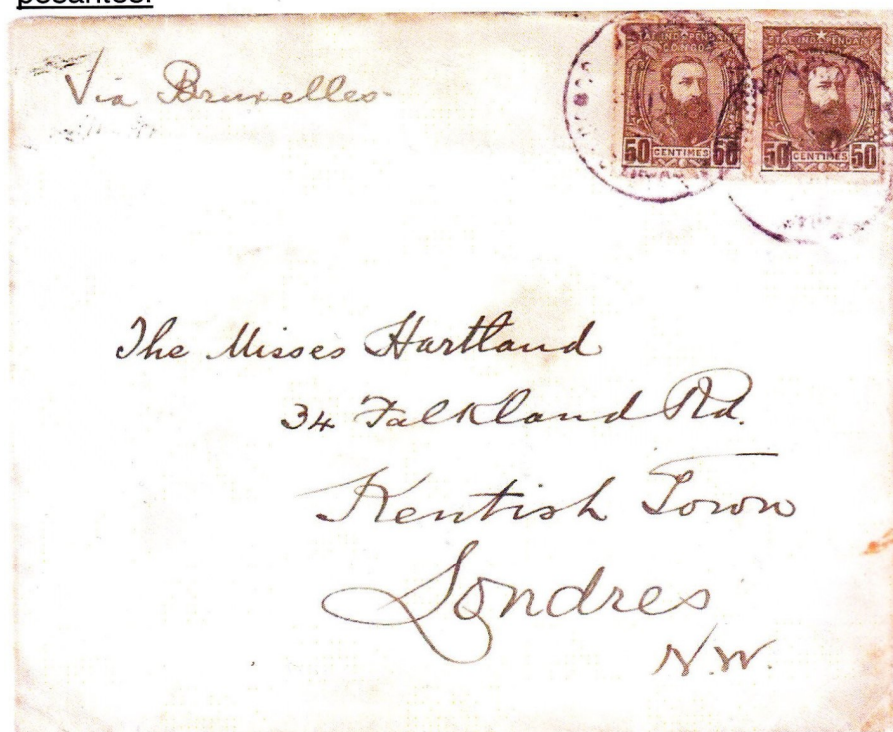 Via Bruxelles
ETAT INDEPENDANT
CONGO
50 CENTIMES 50
ETAT INDEPENDAN
50 CENTIMES 50
The Misses Hartland
34 Falkland Rd.
Kentish Town
Londres
N.W.